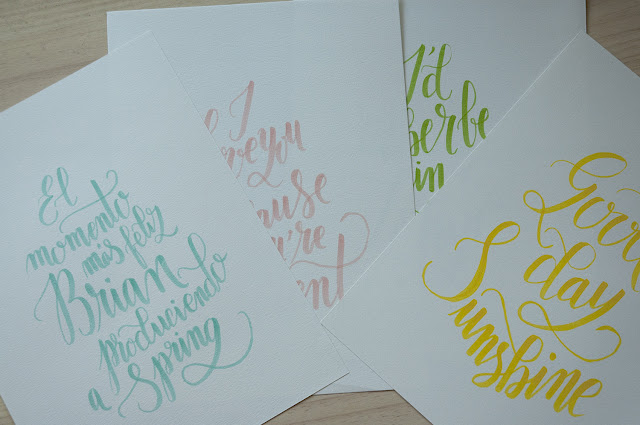 El
momento
mas feliz
Brian
produciendo
a Spring
I
you
're
I'd
in
Good
day
Sunshine